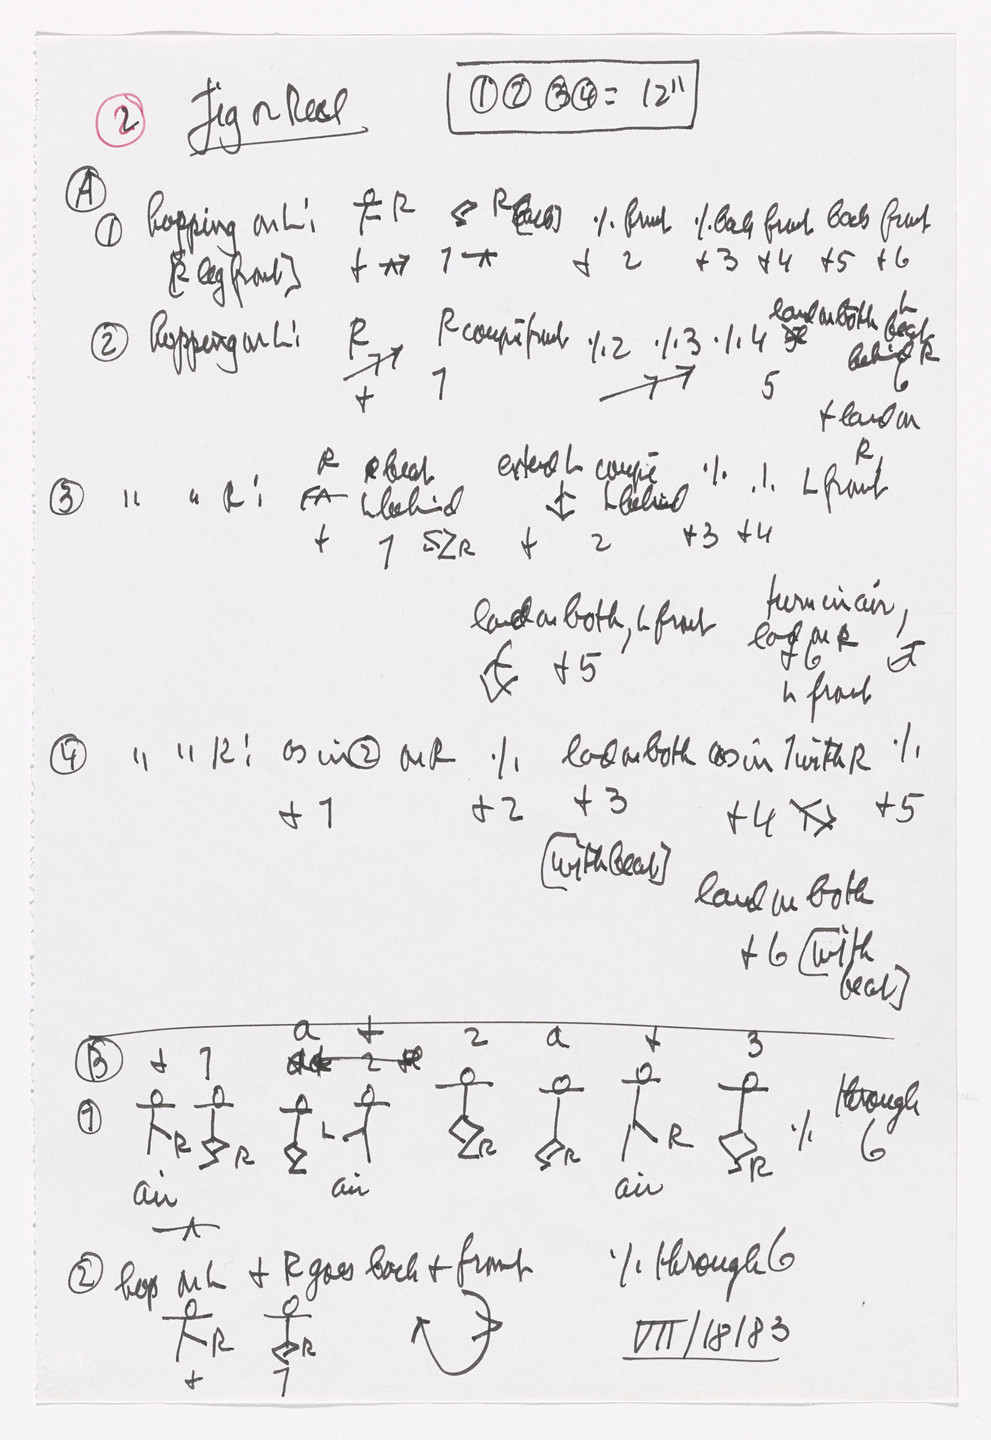 2 Jig or Reel ① ② ③ ④ = 12"
A
① hopping on L: R R [back] ·/. front ·/. back front back front
[R leg front] + 1 + 2 +3 +4 +5 +6
② hopping on L: R R coupé front ·/. 2 ·/. 3 ·/. 4 land on both L beat
behind R
+ 1 5 6
+ land on
R
③ " " R: R beat extend L coupé ·/. ·/. L front
L behind L behind
+ 1 R + 2 +3 +4
land on both, L front turn in air,
land on R
+5 +6
L front
④ " " R: as in ② on R ·/. land on both as in 1 with R ·/.
+1 +2 +3 +4 +5
[with beat]
land on both
+6 [with
beat]
B + 1 a + 2 a + 3
① R R L R R R R ·/. through
6
air air air
② hop on L + R goes back + front ·/. through 6
R R
+ 1
VII/18/83